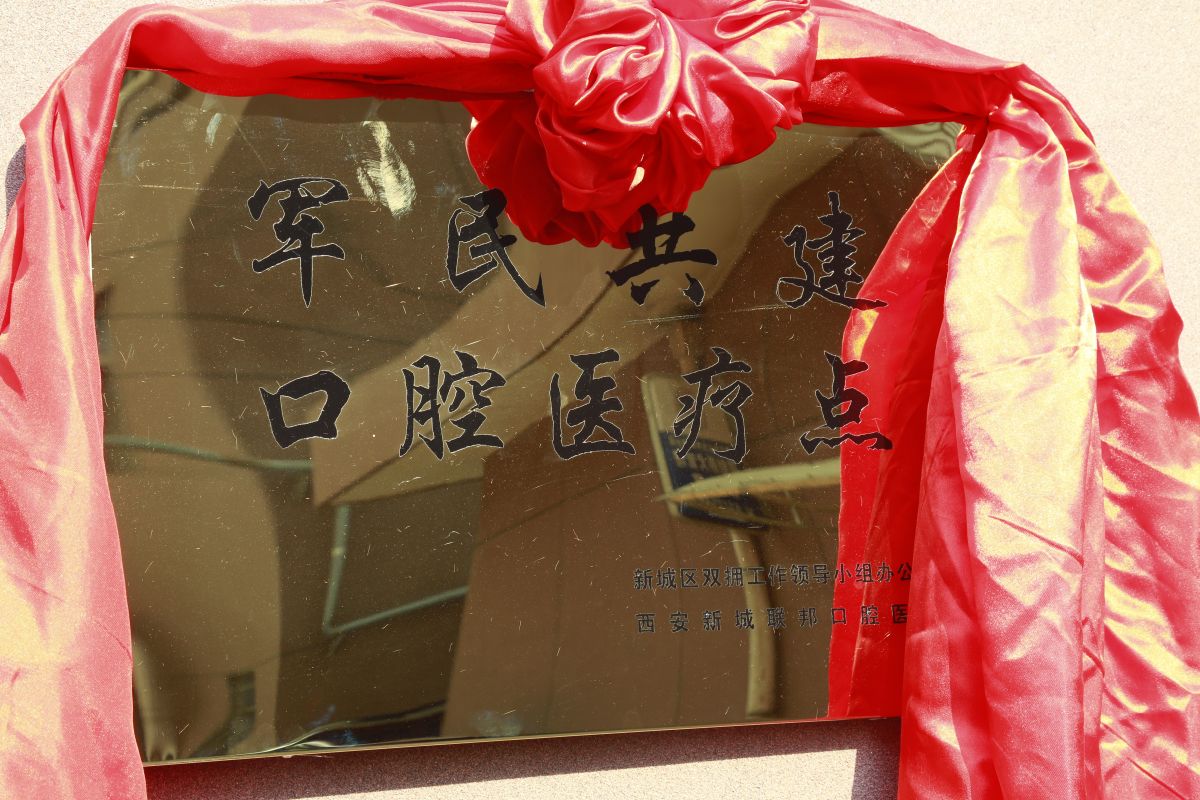 军民共建
口腔医疗点
新城区双拥工作领导小组办公
西安新城联邦口腔医